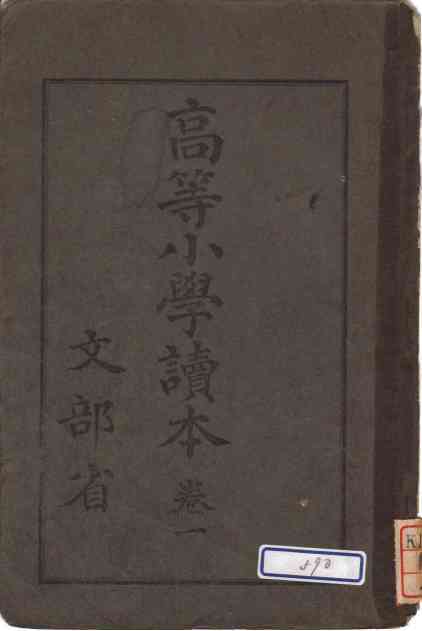 高等小學讀本 卷一
文部省
590